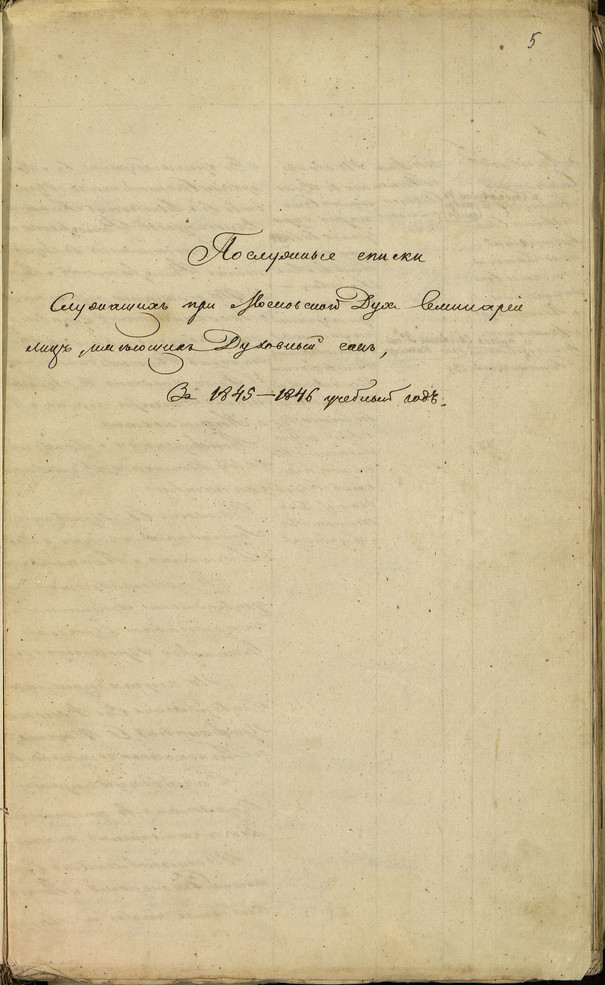 5
Послужные списки
Служащихъ при Московской Дух. Семинаріи
лицъ, имѣющихъ Духовный санъ,
За 1845—1846 учебный годъ.